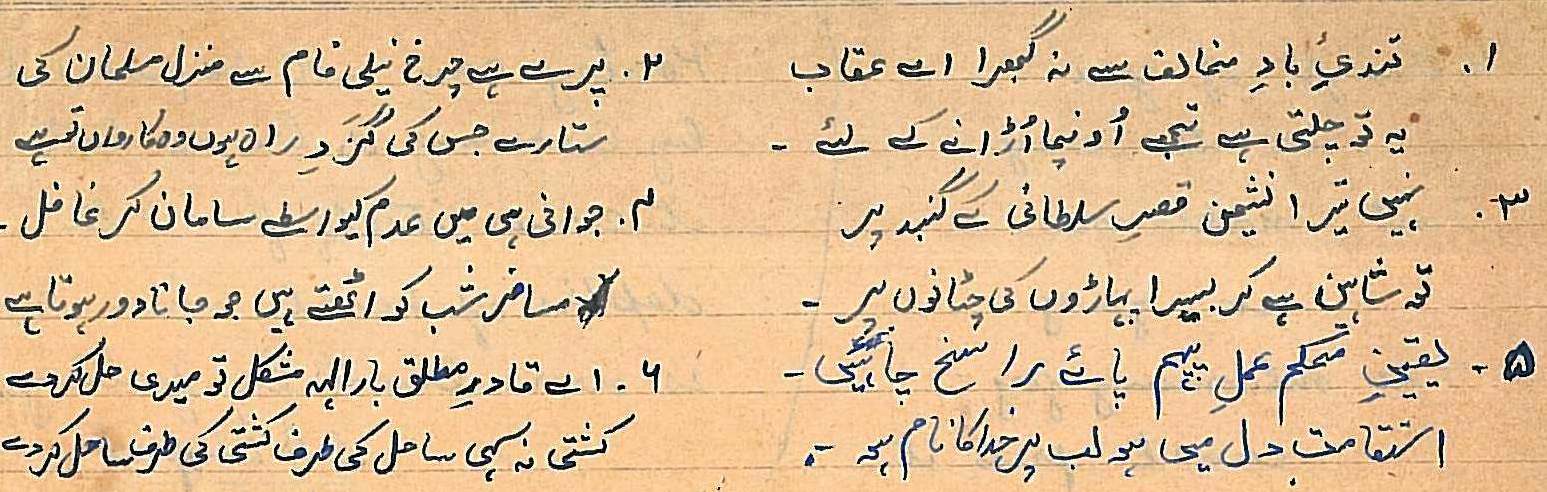 ۱. تندیٔ بادِ مخالف سے نہ گھبرا اے عقاب
یہ تو چلتی ہے تجھے اُونچا اُڑانے کے لئے -
۲. پرے ہے چرخِ نیلی فام سے منزل مسلمان کی
ستارے جس کی گَردِ راہ ہوں وہ کارواں تو ہے
۳. نہیں تیرا نشیمن قصرِ سلطانی کے گنبد پر
تو شاہین ہے کر بسیرا پہاڑوں کی چٹانوں پر -
۴. جوانی ہی میں عدم کیواسطے سامان کر غافل -
مسافر شب کو اٹھتے ہیں جو جانا دور ہوتا ہے
۵ - یقینِ محکم عملِ پیہم پائے راسخ چاہئیں -
استقامت دل میں ہو لب پر خدا کا نام ہو -
۶ - اے قادرِ مطلق بارالہہ مشکل تو میری حل کردے
کشتی نہ سہی ساحل کی طرف کشتی کی طرف ساحل کردے